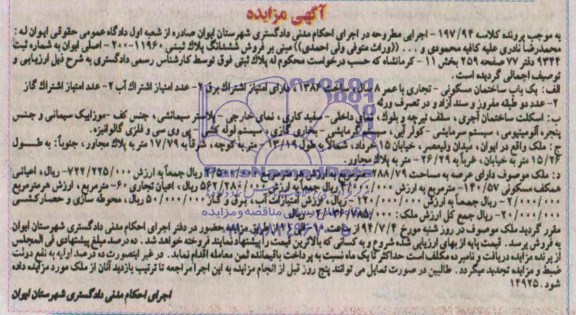 آگهی مزایده
به موجب پرونده کلاسه ۱۹۷/۹۴ - اجرایی مطروحه در اجرای احکام مدنی دادگستری شهرستان ایوان صادره از شعبه اول دادگاه عمومی حقوقی ایوان له :
محمدرضا نادری علیه کافیه محمودی و ... ((وراث متوفی ولی احمدی)) مبنی بر فروش ششدانگ پلاک ثبتی ۱۱۹۶۰-۲۰۰ - اصلی ایوان به شماره ثبت
۹۳۴۴ دفتر ۷۷ صفحه ۲۵۹ بخش ۱۱ - کرمانشاه که حسب درخواست محکوم له پلاک ثبتی فوق توسط کارشناس رسمی دادگستری به شرح ذیل ارزیابی و
توصیف اجمالی گردیده است.
الف: یک باب ساختمان مسکونی - تجاری با عمر ۸ سال، ساخت ۱۳۸۶، دارای امتیاز اشتراک برق ۲- عدد امتیاز اشتراک آب ۲- عدد امتیاز اشتراک گاز
۲- عدد دو طبقه مفروز و سند آزاد و در تصرف ورثه
ب: اسکلت ساختمان آجری، سقف تیرچه و بلوک، نمای داخلی- سفید کاری، نمای خارجی - پلاستر سیمانی، جنس کف - موزاییک سیمانی و جنس
پنجره آلومینیومی، سیستم سرمایشی - کولر آبی، سیستم گرمایشی - بخاری گازی، سیستم لوله کشی - پی وی سی و فلزی گالوانیزه.
ج: ملک واقع در ایوان، میدان ولیعصر، خیابان ۱۵ خرداد، شمالاً به طول ۱۳/۱۹ - متر به کوچه، شرقاً به ۱۷/۷۹ متر به پلاک مجاور، جنوباً: به طول
۱۵/۲۶ متر به خیابان، غرباً ۲۶/۲۹ - متر به پلاک مجاور.
د: ملک موصوف دارای عرصه به مساحت ۲۸۸/۷۹ مترمربع به ارزش هر مترمربع ۲/۵۰۰/۰۰۰ ریال جمعاً به ارزش ۷۲۲/۲۲۵/۰۰۰ - ریال، اعیانی
همکف مسکونی ۱۴۰/۵۷ - مترمربع به ارزش ۴/۰۰۰/۰۰۰ ریال جمعاً به ارزش ۵۶۲/۲۸۰/۰۰۰ ریال، اعیان تجاری ۶۰- مترمربع، ارزش هر مترمربع
۲/۰۰۰/۰۰۰ - ریال جمعاً به ارزش ۱۲۰/۰۰۰/۰۰۰ - ریال، ارزش امتیازات آب، برق و گاز ۵۰/۰۰۰/۰۰۰ ریال، محوطه سازی و حصارکشی
ریال- جمع کل ارزش ملک: ریال
مقرر گردید ملک موصوف در روز شنبه مورخ ۹۴/۷/۴ از ساعت از طریق مزایده حضوری در دفتر اجرای احکام مدنی دادگستری شهرستان ایوان
به فروش برسد. قیمت پایه از بهای ارزیابی شده شروع و به کسانی که بالاترین قیمت را پیشنهاد نمایند فروخته خواهد شد. ده درصد مبلغ پیشنهادی فی المجلس
از برنده مزایده دریافت و نامبرده مکلف است حداکثر تا یک ماه نسبت به پرداخت باقیمانده ثمن معامله اقدام نماید. در غیر اینصورت ده درصد اولیه به نفع دولت
ضبط و مزایده تجدید میگردد. طالبین در صورت تمایل می توانند پنج روز قبل از انجام مزایده به این اجرا مراجعه تا ترتیب بازدید آنان از ملک مورد مزایده داده
شود. ۱۴۹۲۵
اجرای احکام مدنی دادگستری شهرستان ایوان